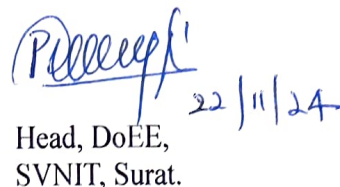 22/11/24
Head, DoEE,
SVNIT, Surat.